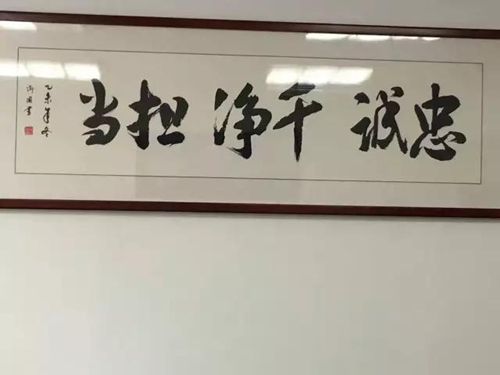 忠诚 干净 担当
乙未年冬